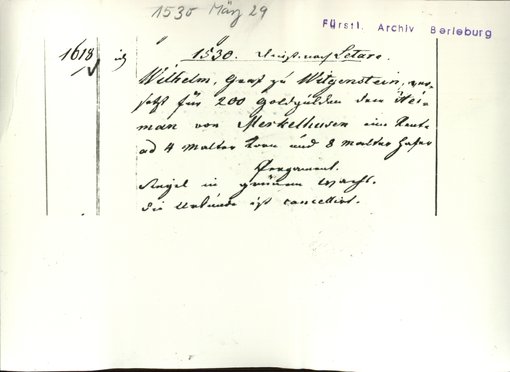 1530 März 29
Fürstl. Archiv Berleburg
1618
1530. Dienst. nach Letare.
Wilhelm, Graf zu Witgenstein, ver-
setzt für 200 Goldgulden dem Hei-
man von Merkelhusen eine Rente
ad 4 Malter Korn und 8 Malter Hafer
Pergament.
Siegel in grünem Wachs.
Die Urkunde ist cancellirt.